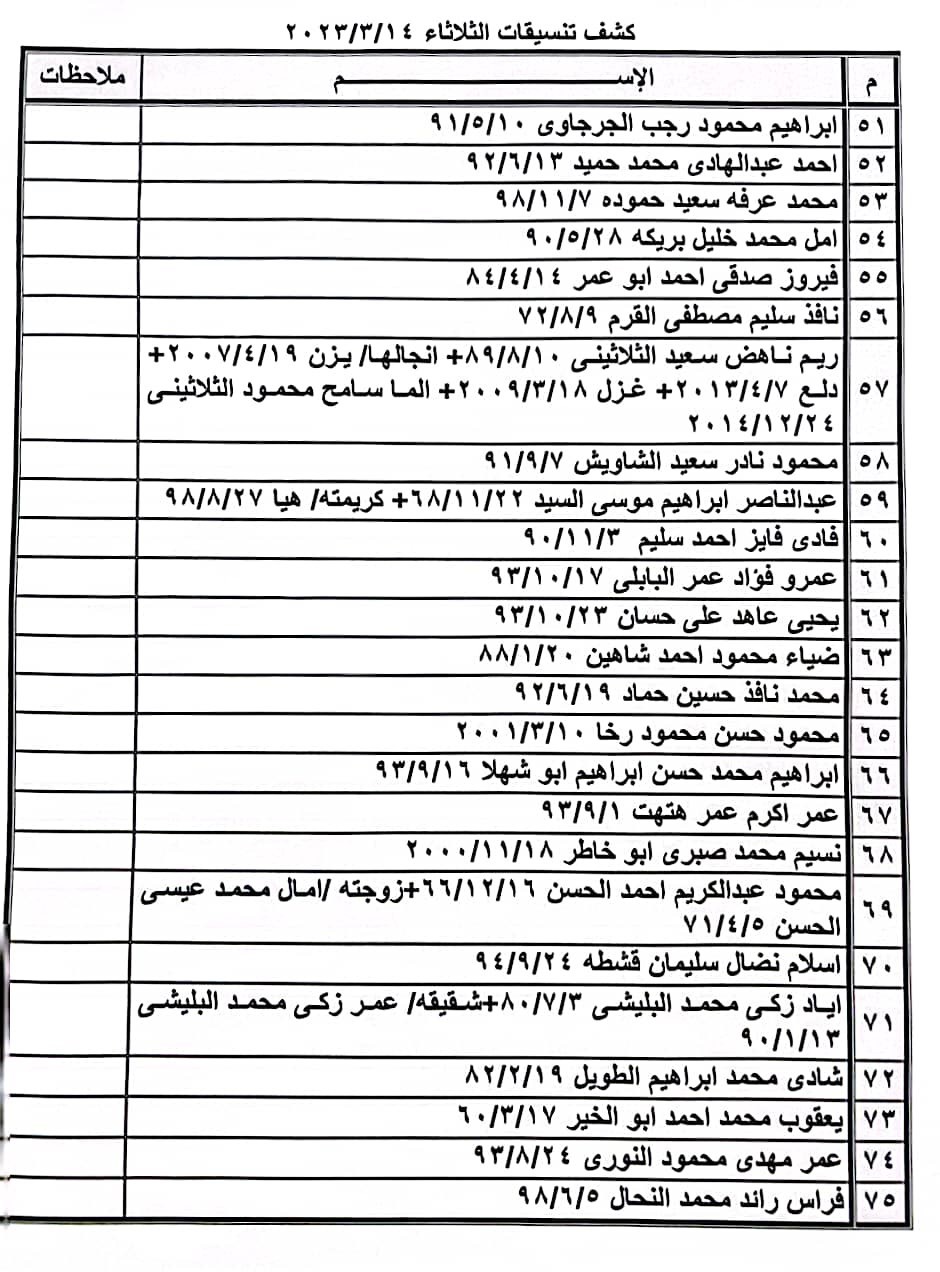 كشف تنسيقات الثلاثاء ٢٠٢٣/٣/١٤
م الإســـــــــــم ملاحظات
٥١ ابراهيم محمود رجب الجرجاوى ٩١/٥/١٠
٥٢ احمد عبدالهادى محمد حميد ٩٢/٦/١٣
٥٣ محمد عرفه سعيد حموده ٩٨/١١/٧
٥٤ امل محمد خليل بريكه ٩٠/٥/٢٨
٥٥ فيروز صدقى احمد ابو عمر ٨٤/٤/١٤
٥٦ نافذ سليم مصطفى القرم ٧٢/٨/٩
٥٧ ريم ناهض سعيد الثلاثينى ٨٩/٨/١٠+ انجالها/ يزن ٢٠٠٧/٤/١٩+
دلع ٢٠١٣/٤/٧+ غزل ٢٠٠٩/٣/١٨+ الما سامح محمود الثلاثينى
٢٠١٤/١٢/٢٤
٥٨ محمود نادر سعيد الشاويش ٩١/٩/٧
٥٩ عبدالناصر ابراهيم موسى السيد ٦٨/١١/٢٢+ كريمته/ هيا ٩٨/٨/٢٧
٦٠ فادى فايز احمد سليم ٩٠/١١/٣
٦١ عمرو فؤاد عمر البابلى ٩٣/١٠/١٧
٦٢ يحيى عاهد على حسان ٩٣/١٠/٢٣
٦٣ ضياء محمود احمد شاهين ٨٨/١/٢٠
٦٤ محمد نافذ حسين حماد ٩٢/٦/١٩
٦٥ محمود حسن محمود رخا ٢٠٠١/٣/١٠
٦٦ ابراهيم محمد حسن ابراهيم ابو شهلا ٩٣/٩/١٦
٦٧ عمر اكرم عمر هتهت ٩٣/٩/١
٦٨ نسيم محمد صبرى ابو خاطر ٢٠٠٠/١١/١٨
٦٩ محمود عبدالكريم احمد الحسن ٦٦/١٢/١٦+زوجته /امال محمد عيسى
الحسن ٧١/٤/٥
٧٠ اسلام نضال سليمان قشطه ٩٤/٩/٢٤
٧١ اياد زكى محمد البليشى ٨٠/٧/٣+شقيقه/ عمر زكى محمد البليشى
٩٠/١/١٣
٧٢ شادى محمد ابراهيم الطويل ٨٢/٢/١٩
٧٣ يعقوب محمد احمد ابو الخير ٦٠/٣/١٧
٧٤ عمر مهدى محمود النورى ٩٣/٨/٢٤
٧٥ فراس رائد محمد النحال ٩٨/٦/٥